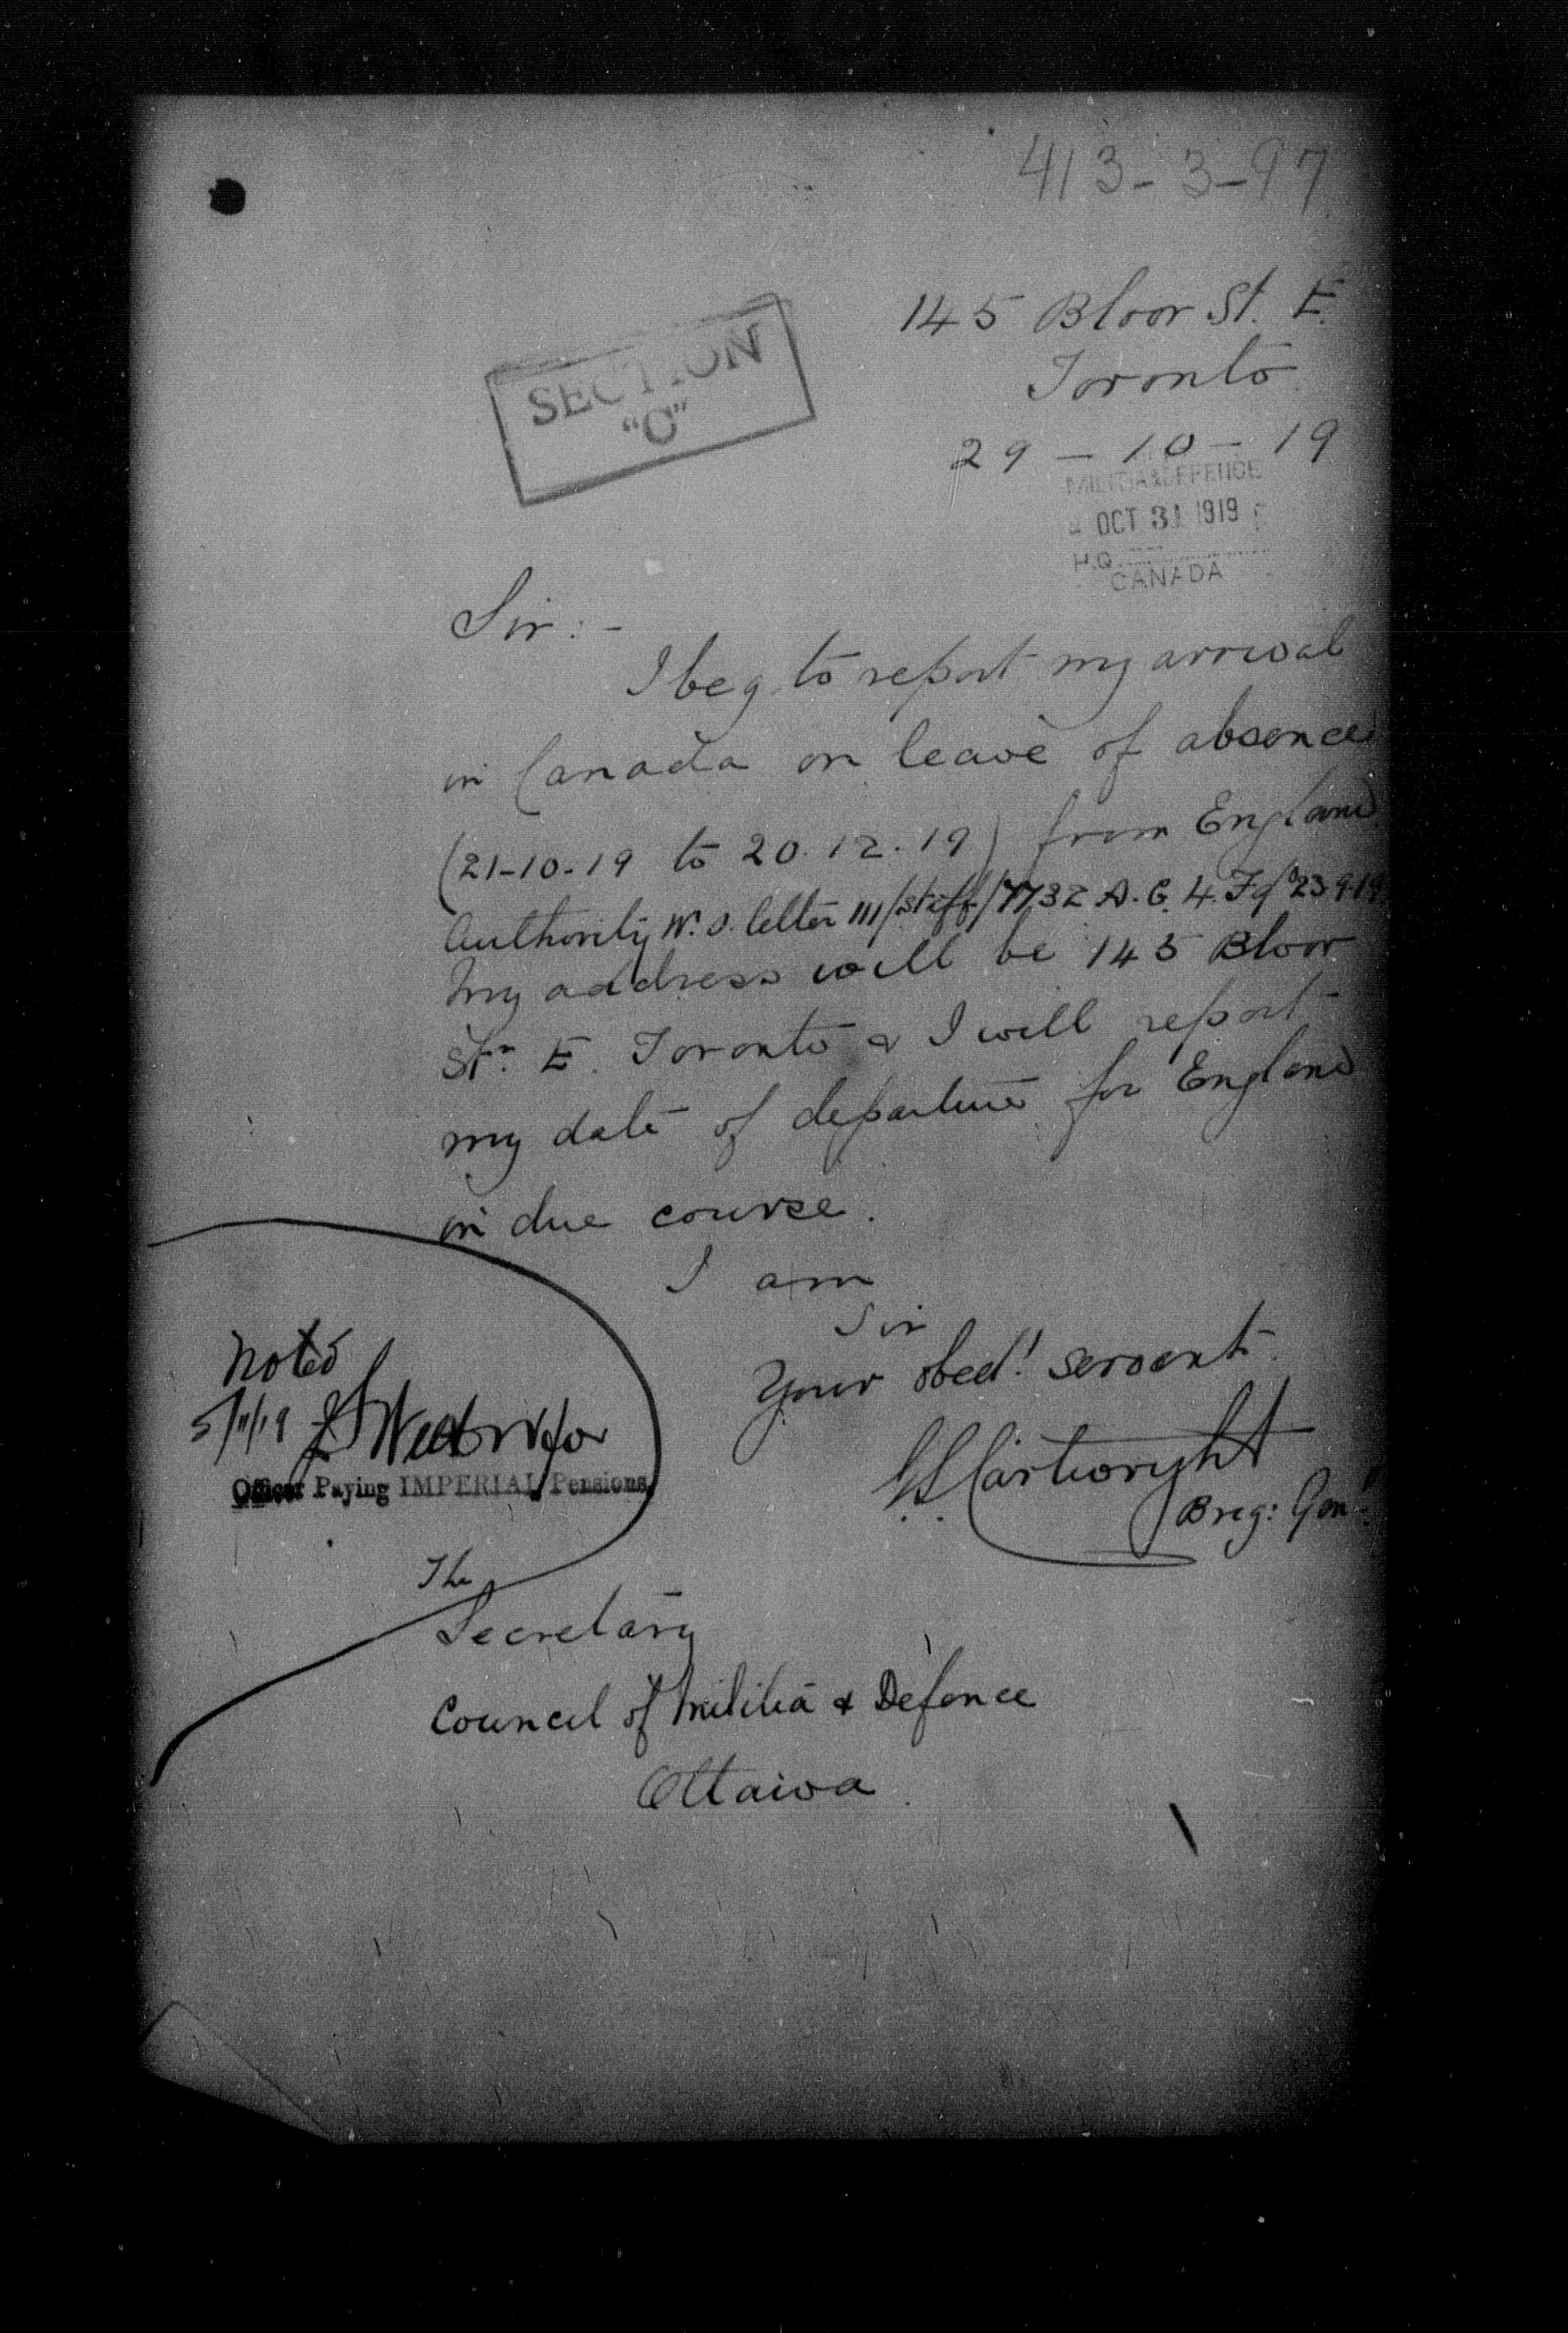 413-3-97
145 Bloor St. E.
Toronto
29-10-19
SECTION
"C"
MILITIA & DEFENCE
OCT 31 1919
H.Q.
CANADA
Sir:-
I beg to report my arrival
in Canada on leave of absence
(21-10-19 to 20.12.19) from England
Authority W.O. letter 111/Staff/7732 A.G.4.
My address will be 145 Bloor
St. E. Toronto & I will report
my date of departure for England
in due course.
I am
Sir
Your obedt servant
Cartwright
Brig: Genl.
Noted
5/11/19
Officer Paying IMPERIAL Pensions.
The
Secretary
Council of Militia & Defence
Ottawa.